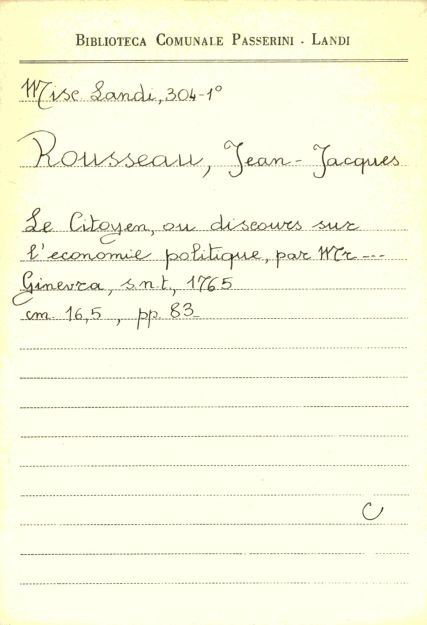 BIBLIOTECA COMUNALE PASSERINI - LANDI
Misc Landi, 304-1°
Rousseau, Jean-Jacques
Le Citoyen, ou discours sur
l'economie politique, par Mr ---
Ginevra, s.n.t., 1765
cm. 16,5 , pp. 83
C